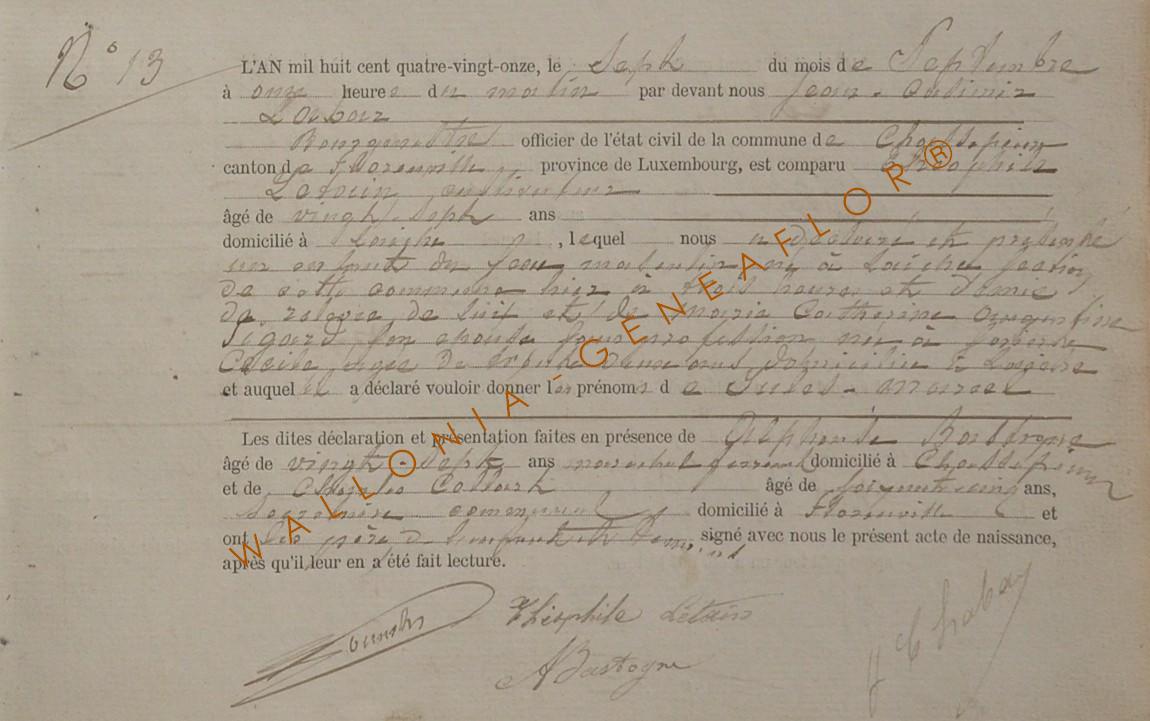 N° 13
L'AN mil huit cent quatre-vingt-onze, le Sept du mois de Septembre
à onze heures du matin par devant nous Jean-Casimir
Bourgmestre officier de l'état civil de la commune de Chassepierre
canton de Florenville province de Luxembourg, est comparu Théophile
Létain cultivateur
âgé de vingt-sept ans
domicilié à Laiche, lequel nous a déclaré et présenté
un enfant du sexe masculin né à Laiche section
de cette commune hier à trois heures et demie
de relevée de lui et de Marie Catherine Augustine
son épouse sans profession née à
Cécile âgée de trente deux ans domiciliée à Laiche
et auquel il a déclaré vouloir donner les prénoms de Jules-Marcel
Les dites déclaration et présentation faites en présence de Alphonse Bastogne
âgé de vingt-sept ans maréchal ferrant domicilié à Chassepierre
et de Charles âgé de cinq ans,
Secrétaire communal domicilié à Florenville et
ont les père de l'enfant et témoins signé avec nous le présent acte de naissance,
après qu'il leur en a été fait lecture.
Théophile Létain
ABastogne
WALLONIA - GENEAFLOR®